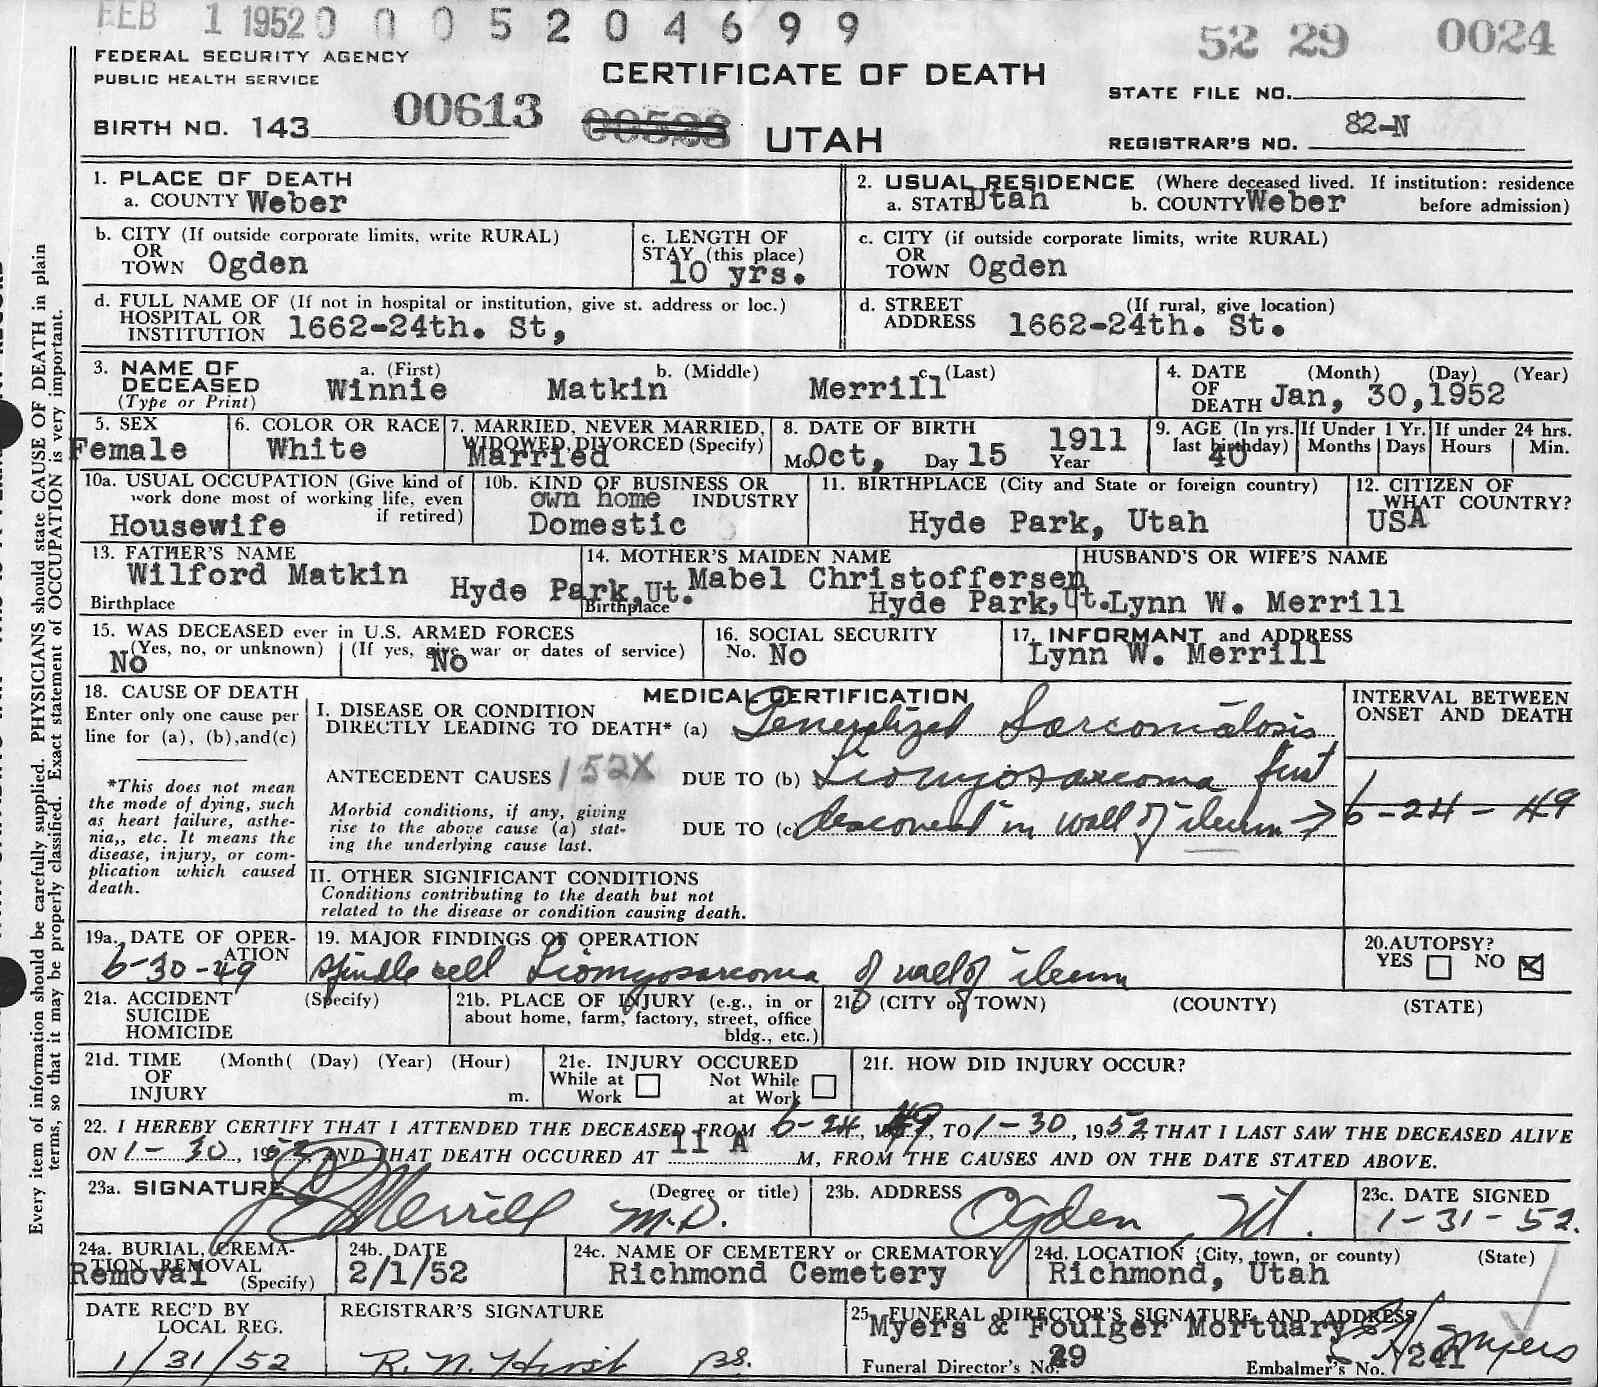 FEB 1 1952 0 0 0 5 2 0 4 6 9 9
52 29 0024
FEDERAL SECURITY AGENCY
PUBLIC HEALTH SERVICE
CERTIFICATE OF DEATH
STATE FILE NO.
BIRTH NO. 143 00613
UTAH
REGISTRAR'S NO. 82-N
Every item of information should be carefully supplied. PHYSICIANS should state CAUSE OF DEATH in plain
terms, so that it may be properly classified. Exact statement of OCCUPATION is very important.
1. PLACE OF DEATH
a. COUNTY Weber
2. USUAL RESIDENCE (Where deceased lived. If institution: residence
a. STATE Utah b. COUNTY Weber before admission)
b. CITY (If outside corporate limits, write RURAL)
OR
TOWN Ogden
c. LENGTH OF
STAY (this place)
10 yrs.
c. CITY (if outside corporate limits, write RURAL)
OR
TOWN Ogden
d. FULL NAME OF (If not in hospital or institution, give st. address or loc.)
HOSPITAL OR
INSTITUTION 1662-24th. St,
d. STREET (If rural, give location)
ADDRESS 1662-24th. St.
3. NAME OF a. (First) b. (Middle) c. (Last)
DECEASED Winnie Matkin Merrill
(Type or Print)
4. DATE (Month) (Day) (Year)
OF
DEATH Jan, 30,1952
5. SEX
Female
6. COLOR OR RACE
White
7. MARRIED, NEVER MARRIED,
WIDOWED, DIVORCED (Specify)
Married
8. DATE OF BIRTH
Mo. Oct, Day 15 1911 Year
9. AGE (In yrs. last birthday)
40
If Under 1 Yr.
Months Days
If under 24 hrs.
Hours Min.
10a. USUAL OCCUPATION (Give kind of
work done most of working life, even
if retired)
Housewife
10b. KIND OF BUSINESS OR
own home INDUSTRY
Domestic
11. BIRTHPLACE (City and State or foreign country)
Hyde Park, Utah
12. CITIZEN OF
WHAT COUNTRY?
USA
13. FATHER'S NAME
Wilford Matkin
Birthplace Hyde Park,Ut.
14. MOTHER'S MAIDEN NAME
Mabel Christoffersen
Birthplace Hyde Park,Ut.
HUSBAND'S OR WIFE'S NAME
Lynn W. Merrill
15. WAS DECEASED ever in U.S. ARMED FORCES
(Yes, no, or unknown) (If yes, give war or dates of service)
No No
16. SOCIAL SECURITY
No. No
17. INFORMANT and ADDRESS
Lynn W. Merrill
18. CAUSE OF DEATH
Enter only one cause per
line for (a), (b),and(c)
*This does not mean
the mode of dying, such
as heart failure, asthe-
nia,, etc. It means the
disease, injury, or com-
plication which caused
death.
MEDICAL CERTIFICATION
I. DISEASE OR CONDITION
DIRECTLY LEADING TO DEATH* (a) Generalized Sarcomatosis
ANTECEDENT CAUSES 152X DUE TO (b) Liomyosarcoma first
Morbid conditions, if any, giving
rise to the above cause (a) stat-
ing the underlying cause last.
DUE TO (c) discovered in wall of ileum →
INTERVAL BETWEEN
ONSET AND DEATH
6-24-49
II. OTHER SIGNIFICANT CONDITIONS
Conditions contributing to the death but not
related to the disease or condition causing death.
19a. DATE OF OPER-
ATION
6-30-49
19. MAJOR FINDINGS OF OPERATION
Spindle cell Liomyosarcoma of wall of ileum
20.AUTOPSY?
YES NO
21a. ACCIDENT (Specify)
SUICIDE
HOMICIDE
21b. PLACE OF INJURY (e.g., in or
about home, farm, factory, street, office
bldg., etc.)
21c (CITY or TOWN) (COUNTY) (STATE)
21d. TIME (Month( (Day) (Year) (Hour)
OF
INJURY m.
21e. INJURY OCCURED
While at Work Not While at Work
21f. HOW DID INJURY OCCUR?
22. I HEREBY CERTIFY THAT I ATTENDED THE DECEASED FROM 6-24, 1949, TO 1-30, 1952, THAT I LAST SAW THE DECEASED ALIVE
ON 1-30, 1952, AND THAT DEATH OCCURED AT 11 A M, FROM THE CAUSES AND ON THE DATE STATED ABOVE.
23a. SIGNATURE (Degree or title)
Merrill M.D.
23b. ADDRESS
Ogden, Ut.
23c. DATE SIGNED
1-31-52.
24a. BURIAL, CREMA-
TION REMOVAL
Removal (Specify)
24b. DATE
2/1/52
24c. NAME OF CEMETERY or CREMATORY
Richmond Cemetery
24d. LOCATION (City, town, or county) (State)
Richmond, Utah
DATE REC'D BY
LOCAL REG.
1/31/52
REGISTRAR'S SIGNATURE
R. N. Hirst
25. FUNERAL DIRECTOR'S SIGNATURE AND ADDRESS
Myers & Foulger Mortuary
Myers
Funeral Director's No. 29 Embalmer's No. 241